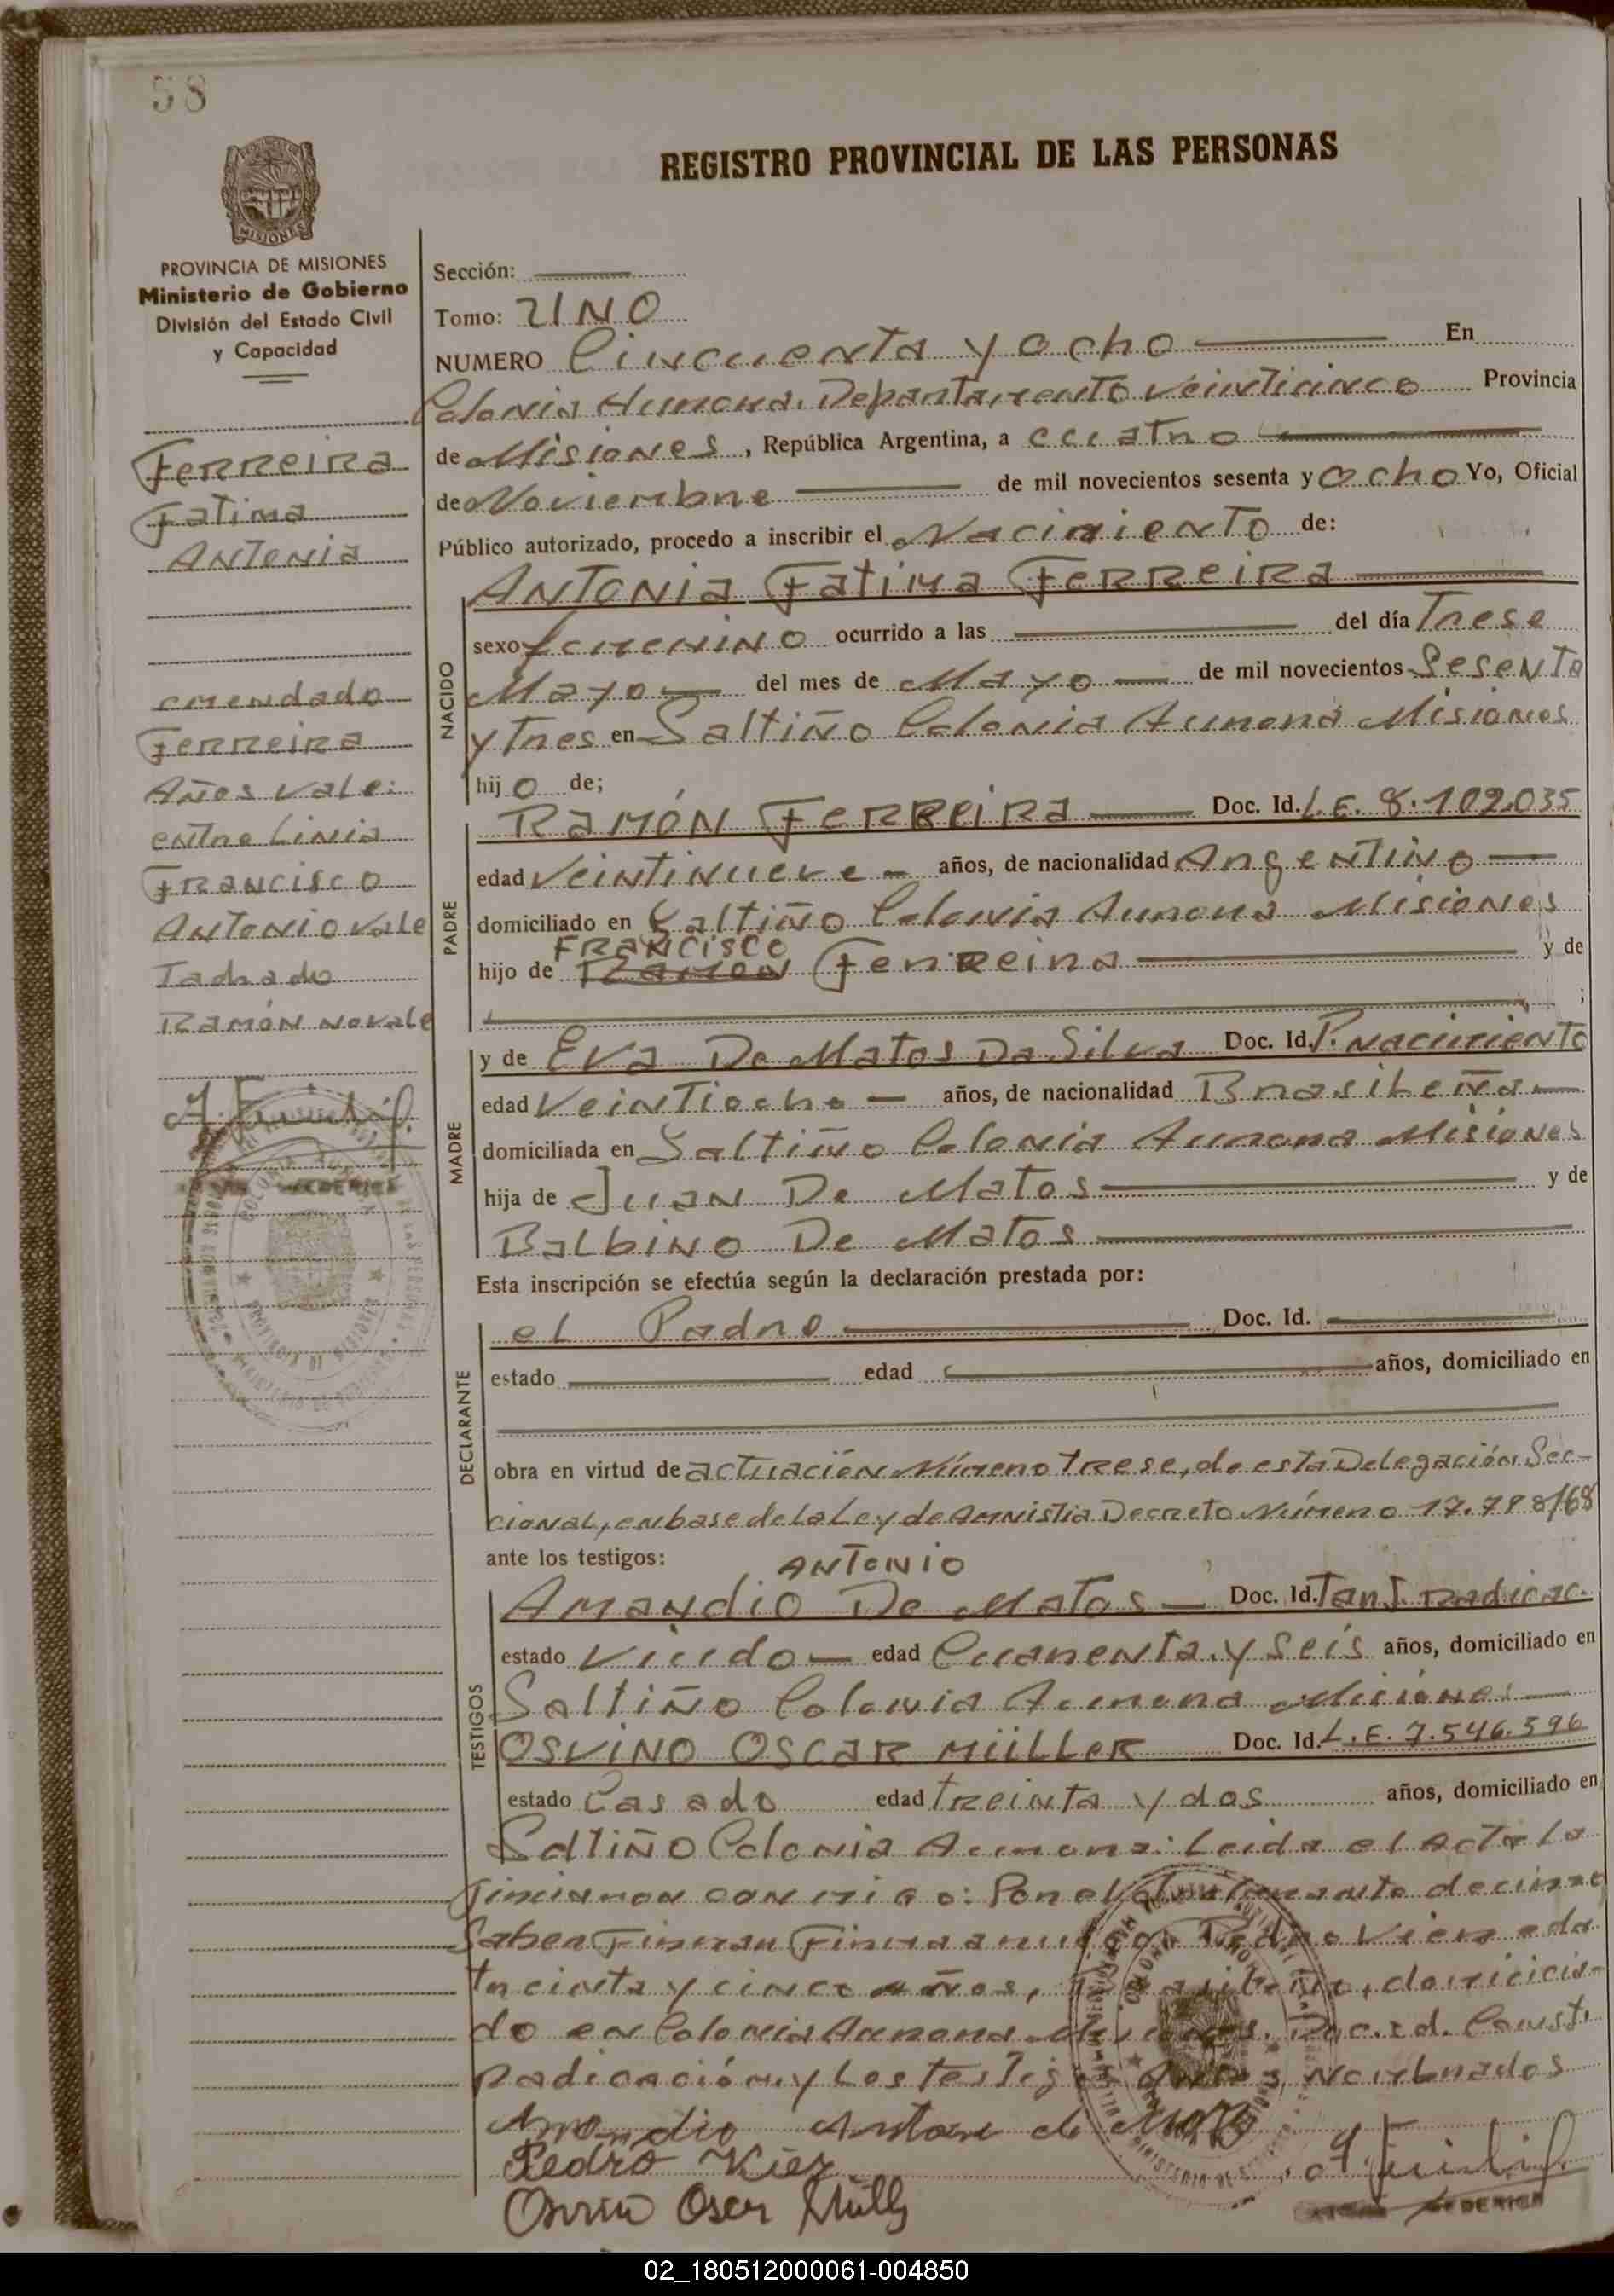 58
REGISTRO PROVINCIAL DE LAS PERSONAS
MISIONES
PROVINCIA DE MISIONES
Ministerio de Gobierno
División del Estado Civil
y Capacidad
Ferreira
Fatima
Antonia
emendado
Ferreira
Años vale:
entre Linia
Francisco
Antonio vale
Tachado
Ramón no vale
Sección:
Tomo: UNO
NUMERO Cincuenta y ocho En
Colonia Aurora. Departamento veinticinco Provincia
de Misiones, República Argentina, a cuatro
de Noviembre de mil novecientos sesenta y ocho Yo, Oficial
Público autorizado, procedo a inscribir el Nacimiento de:
Antonia Fatima Ferreira
NACIDO
sexo femenino ocurrido a las del día Trese
Mayo del mes de Mayo de mil novecientos Sesenta
y Tres en Saltiño Colonia Aurora Misiones
hijo de;
PADRE
Ramón Ferreira Doc. Id. L.E. 8.102.035
edad veintinueve años, de nacionalidad Argentino
domiciliado en Saltiño Colonia Aurora Misiones
Francisco
hijo de Ramon Ferreira y de
MADRE
y de Eva De Matos Da Silva Doc. Id. P. nacimiento
edad veintiocho años, de nacionalidad Brasileña
domiciliada en Saltiño Colonia Aurora Misiones
hija de Juan De Matos y de
Balbino De Matos
Esta inscripción se efectúa según la declaración prestada por:
DECLARANTE
el Padre Doc. Id.
estado edad años, domiciliado en
obra en virtud de actuación Número trese, de esta Delegación Sec-
cional, en base de la Ley de Amnistia Decreto Número 17.798/68
ante los testigos:
Antonio
TESTIGOS
Amandio De Matos Doc. Id. Tanj. Radicac.
estado Viudo edad Cuarenta y seis años, domiciliado en
Saltiño Colonia Aurora Misiones
Osvino Oscar Müller Doc. Id. L.E. 7.546.596
estado Casado edad treinta y dos años, domiciliado en
Saltiño Colonia Aurora: Leida el Acta la
firman con migo: Por el declarante decir no
Saber Firmar Firma a ruego Pedro Kiez eda
treinta y cinco años, domicilia-
do en Colonia Aurora Misiones. Doc. id. Const.
radicación y Los testigos Antes Nombrados
Amandio Antonio de Matos
Pedro Kiez
Osvino Oscar Müller
02_180512000061-004850